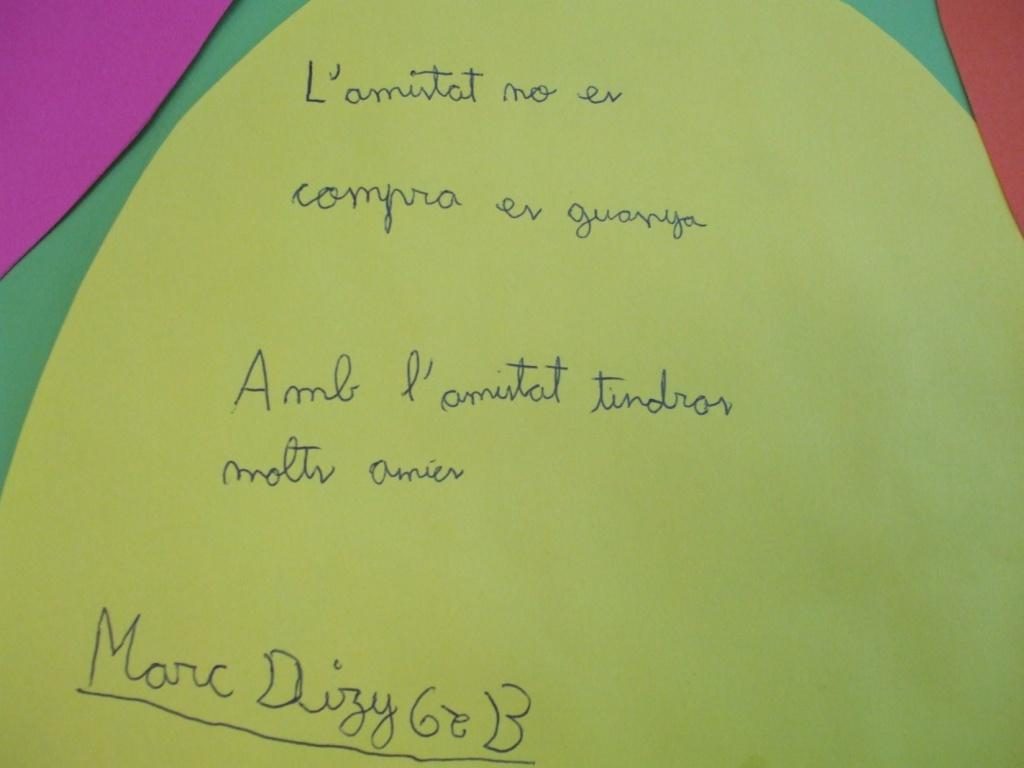 L'amistat no es
compra es guanya
Amb l'amistat tindras
molts amics
Marc Dizy 6è B